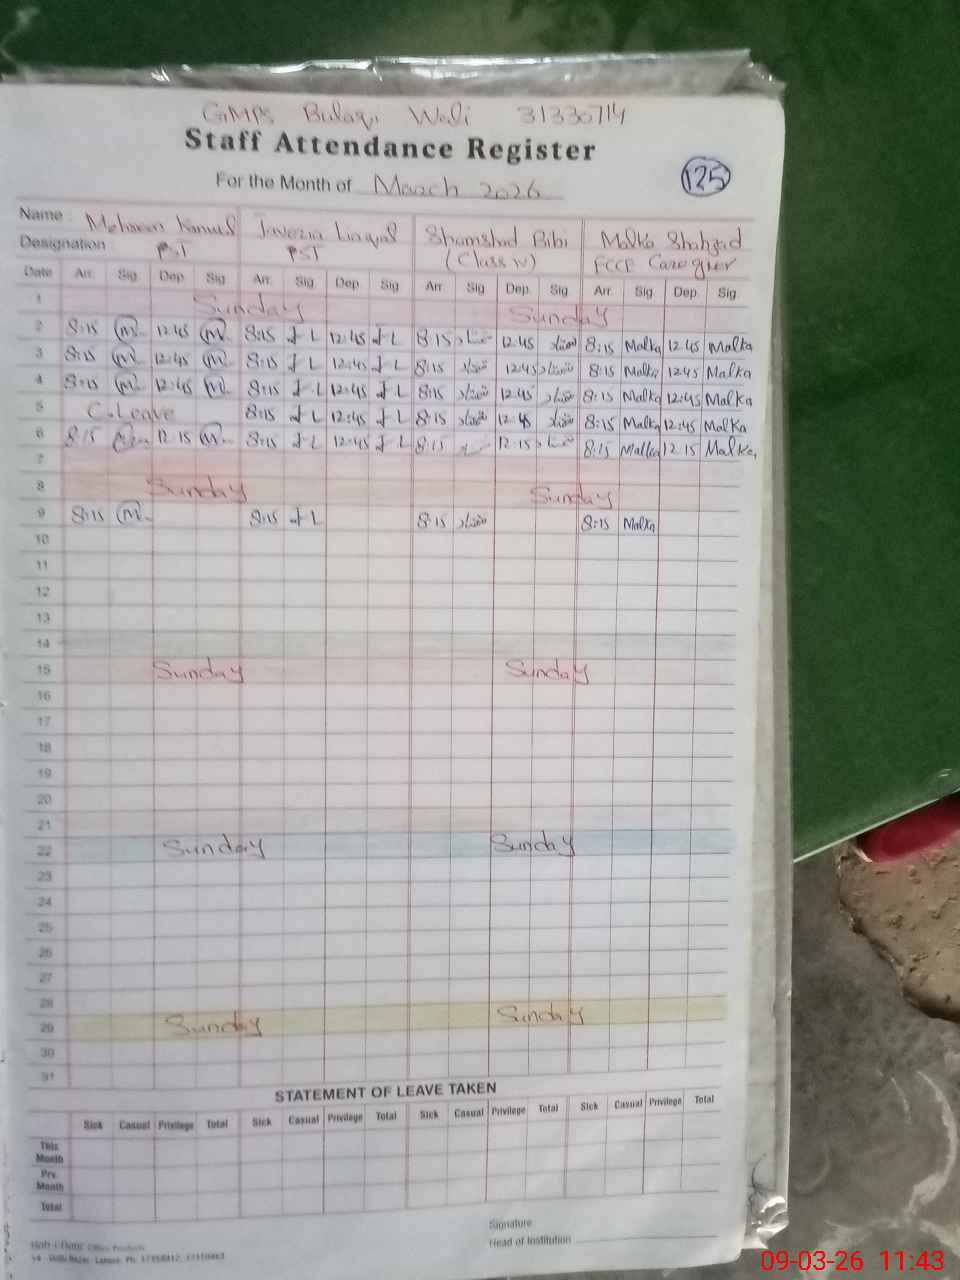 GMPS Bulaqi Wali 31330714
Staff Attendance Register
For the Month of March 2026
125
Name Javezia Shamshad Bibi Malka Shahzad
Designation PST PST (Class IV) ECCE Caregiver
Date Arr. Sig. Dep. Sig. Arr. Sig. Dep. Sig. Arr. Sig. Dep. Sig. Arr. Sig. Dep. Sig.
1 Sunday Sunday
2 8:15 M 12:45 M 8:15 J L 12:45 J L 8:15 شمشاد 12:45 شمشاد 8:15 Malka 12:45 Malka
3 8:15 M 12:45 M 8:15 J L 12:45 J L 8:15 شمشاد 12:45 شمشاد 8:15 Malka 12:45 Malka
4 8:15 M 12:45 M 8:15 J L 12:45 J L 8:15 شمشاد 12:45 شمشاد 8:15 Malka 12:45 Malka
5 C.Leave 8:15 J L 12:45 J L 8:15 شمشاد 12:45 شمشاد 8:15 Malka 12:45 Malka
6 8:15 12:15 M 8:15 J L 12:45 J L 8:15 12:15 شمشاد 8:15 Malka 12:15 Malka
7
8 Sunday Sunday
9 8:15 M 8:15 J L 8:15 شمشاد 8:15 Malka
10
11
12
13
14
15 Sunday Sunday
16
17
18
19
20
21
22 Sunday Sunday
23
24
25
26
27
28
29 Sunday Sunday
30
31
STATEMENT OF LEAVE TAKEN
Sick Casual Privilege Total Sick Casual Privilege Total Sick Casual Privilege Total Sick Casual Privilege Total
This Month
Prv. Month
Total
Signature
Head of Institution
09-03-26 11:43